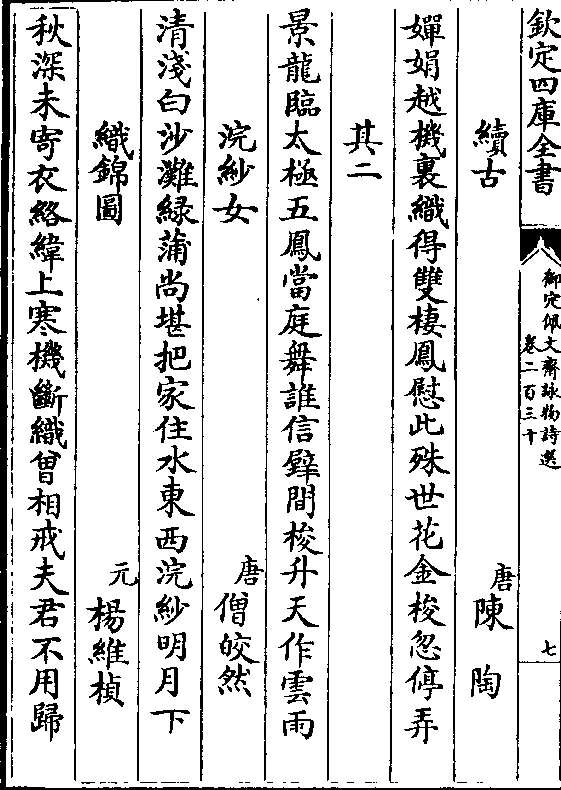 欽定四庫全書
御定佩文齋詠物詩選
卷二百三十
七
續古
唐陳陶
嬋娟越機裏織得雙棲鳳慰此殊世花金梭忽停弄
其二
景龍臨太極五鳳當庭舞誰信壁間梭升天作雲雨
浣紗女
唐僧皎然
清淺白沙灘綠蒲尚堪把家住水東西浣紗明月下
織錦圖
元楊維楨
秋深未寄衣絡緯上寒機斷織曾相戒夫君不用歸